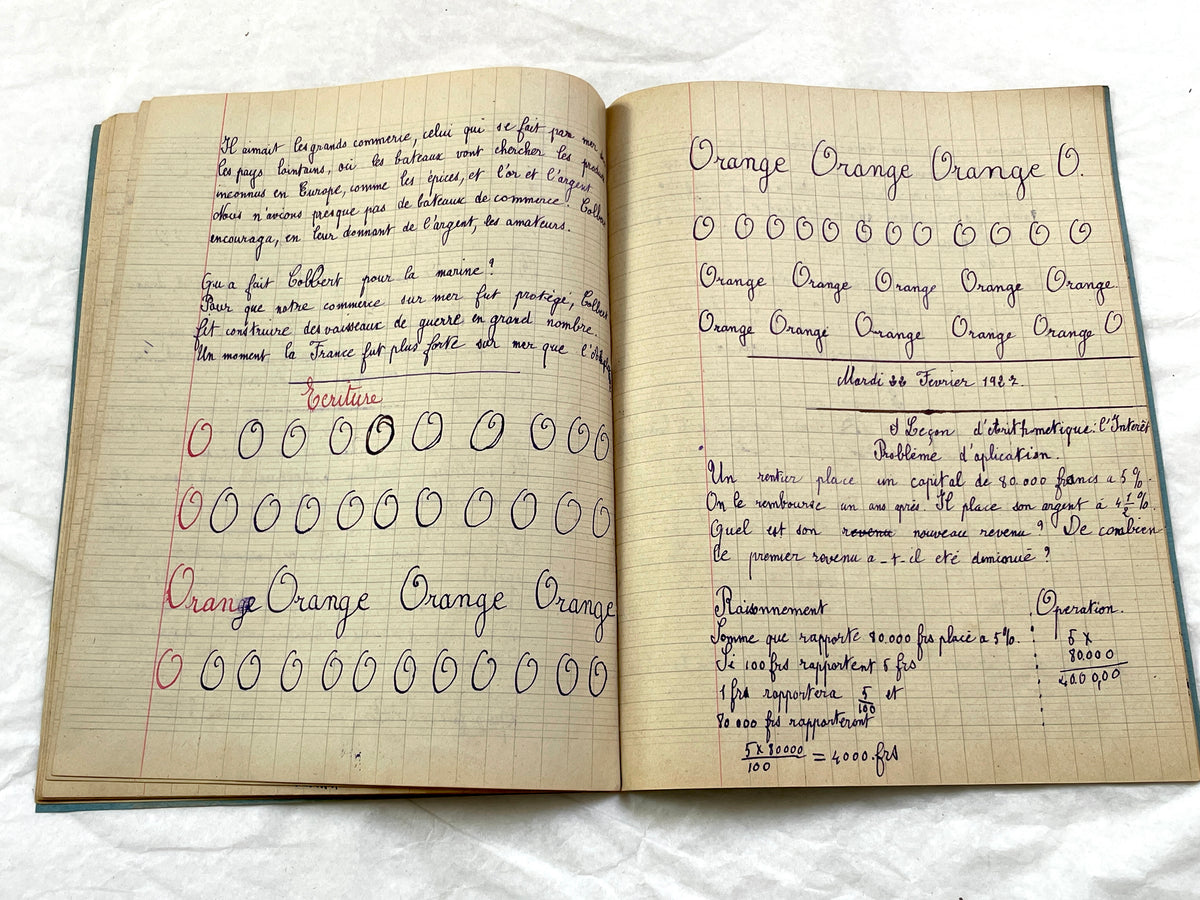 Il aimait les grands commerce, celui qui se fait par mer
les pays lointains, où les bateaux vont chercher les produits
inconnus en Europe, comme les épices, et l'or et l'argent
Nous n'avions presque pas de bateaux de commerce. Colbert
encouraga, en leur donnant de l'argent, les amateurs.
Qu a fait Colbert pour la marine ?
Pour que notre commerce sur mer fut protégé, Colbert
fit construire des vaisseaux de guerre en grand nombre.
Un moment la France fut plus forte sur mer que
Ecriture
O O O O O O O O O O
O O O O O O O O O O
Orange Orange Orange Orange
O O O O O O O O O O O
Orange Orange Orange O.
O O O O O O O O O O O O
Orange Orange Orange Orange Orange
Orange Orange Orange Orange Orange O
Mardi 22 Fevrier 1927.
Leçon d'Arithmetique : l'Interêt
Problème d'aplication.
Un rentier place un capital de 80.000 francs a 5 %.
On le rembourse un ans après. Il place son argent à 4 1/2 %.
Quel est son revenu nouveau revenu ? De combien
le premier revenu a-t-il eté diminué ?
Raisonnement
Somme que rapporte 80.000 frs placé a 5%.
Si 100 frs rapportent 5 frs
1 frs rapportera 5/100 et
80 000 frs rapporteront
5 x 80000 / 100 = 4000. frs
Operation.
5 x
80,000
4000,00